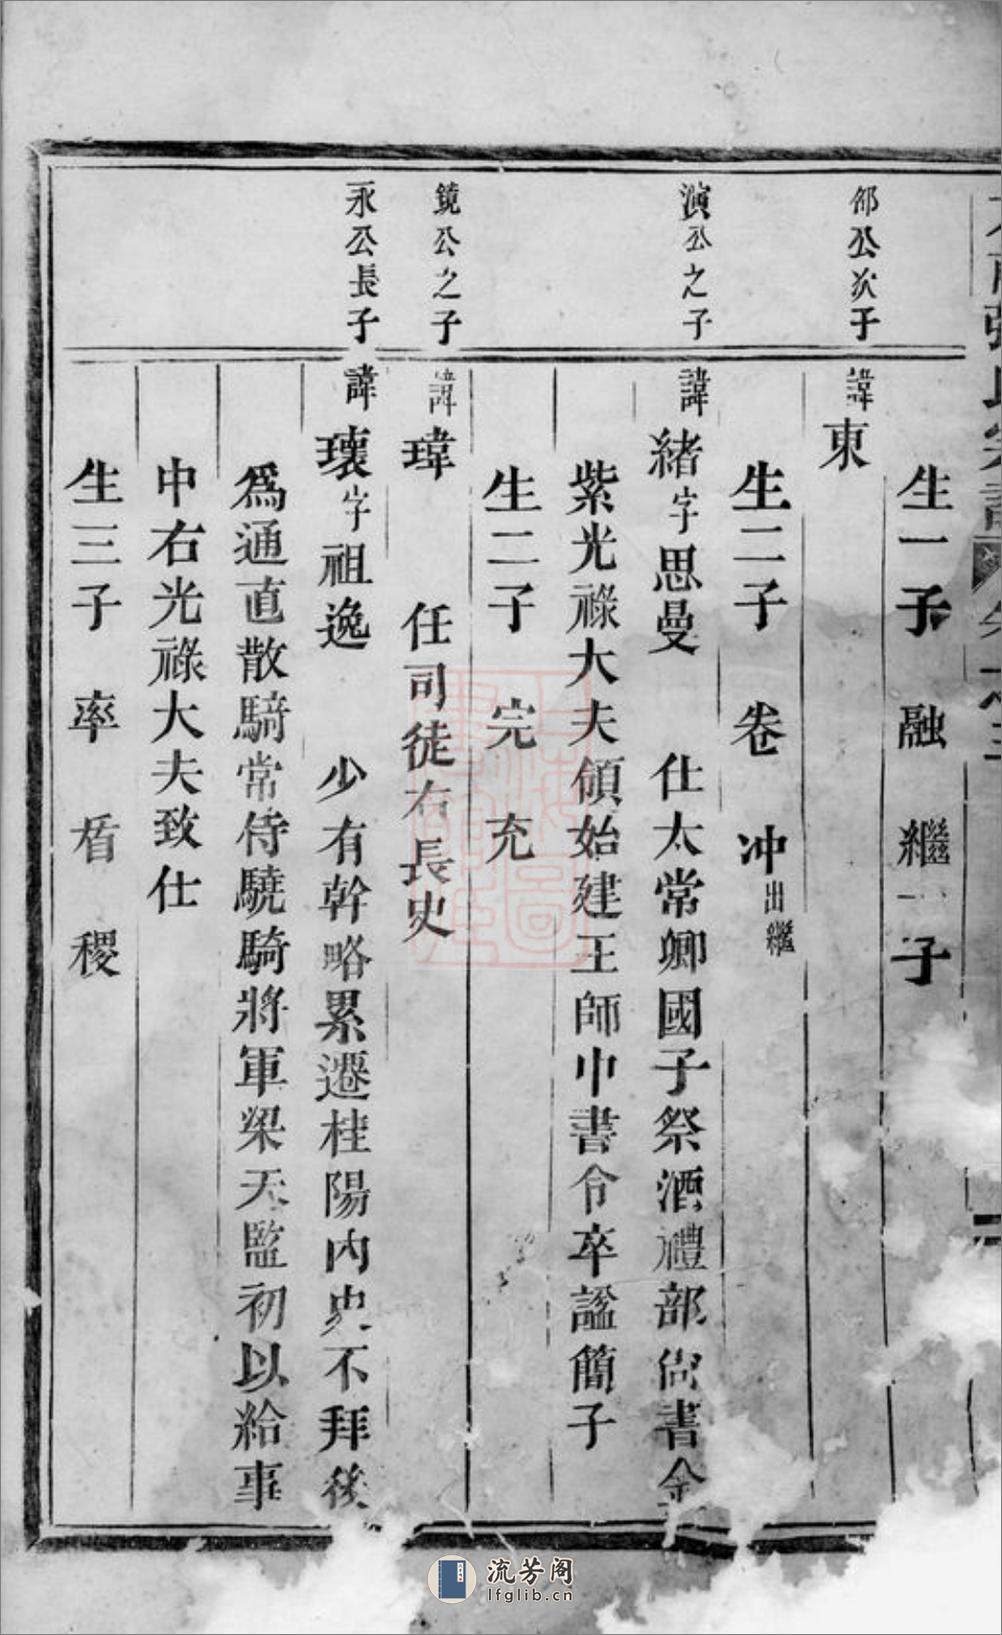 張氏宗譜
生一子 融 繼一子
邵公次子
諱東
生二子 卷 冲出繼
演公之子
諱緒字思曼 仕太常卿國子祭酒禮部尙書金
紫光祿大夫領始建王師中書令卒諡簡子
生二子 完 充
鏡公之子
諱瑋 任司徒右長史
永公長子
諱瓌字祖逸 少有幹略累遷桂陽內史不拜後
爲通直散騎常侍驍騎將軍梁天監初以給事
中右光祿大夫致仕
生三子 率 盾 稷
流芳阁
lfglib.cn